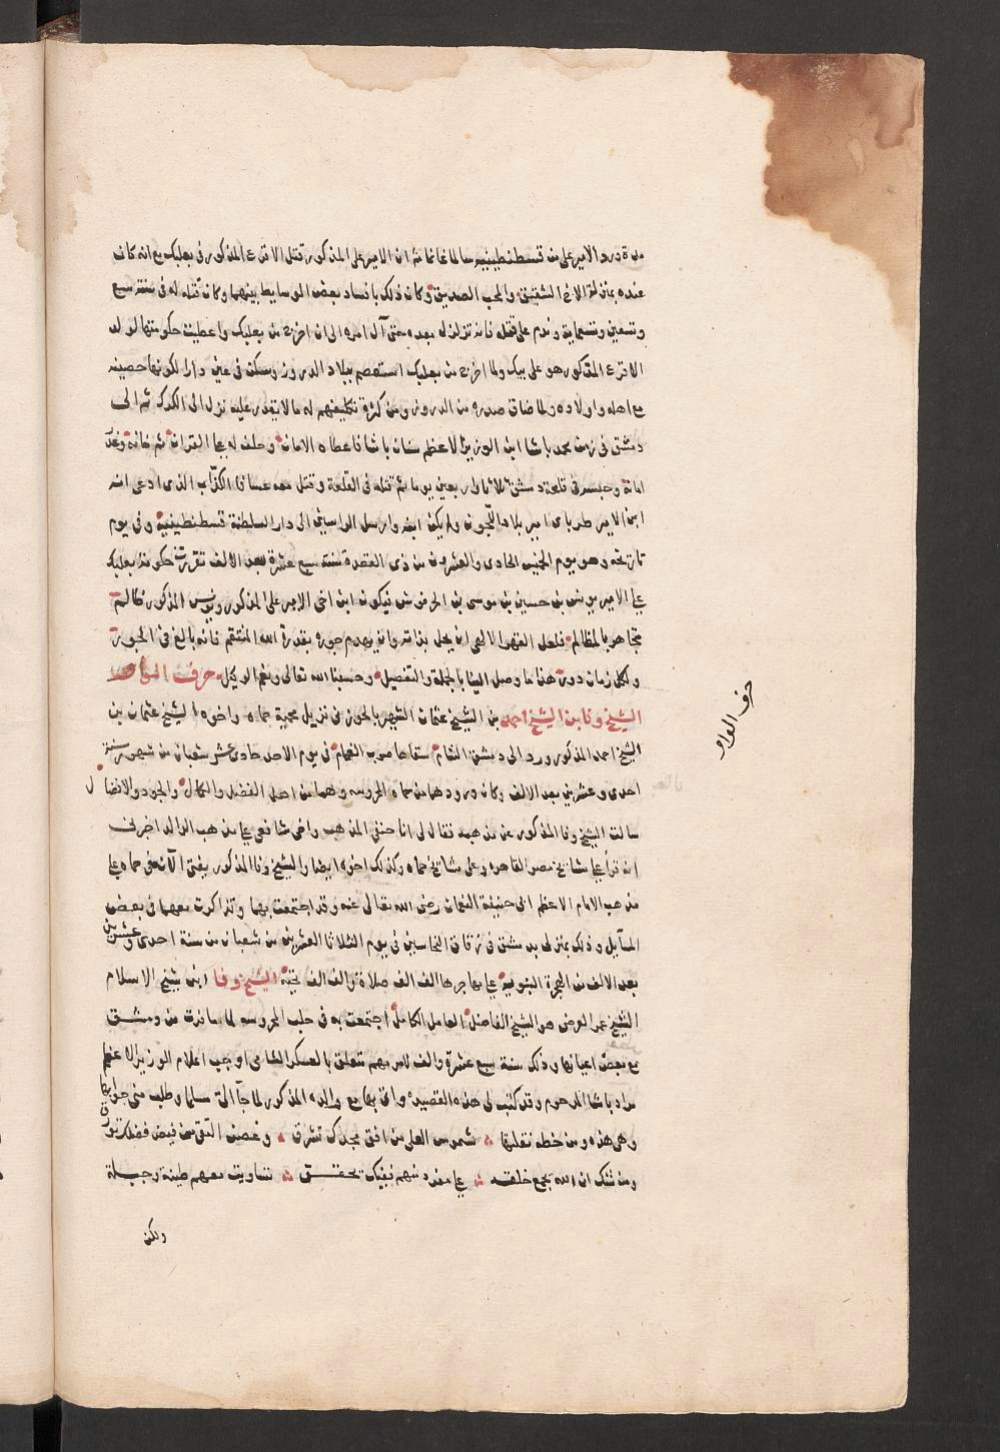 مدة ورد الامير علي من قسطنطينيه سالما غانما ثم ان الامير علي المذكور قتل الاقرع المذكور في بعلبك مع انه كان
عنده بمنزلة الاخ الشقيق والمحب الصديق وكان ذلك بافساد بعض الوسايط بينهما وكان قتله له في سنة سبع
وتسعين وتسعماية وندم على قتله فانه تزلزل له بعده حتى آل امره الى ان اخرج من بعلبك واعطيت حكومتها لولد
الاقرع المذكور هو علي بيك ولما اخرج من بعلبك استعصم ببلاد الدروز وسكن في عين دارا لكونها حصينه
مع اهله واولاده ولما ضاق صدره من الدروز ومن كثرة تكليفهم له ما لا يقدر عليه نزل الى الكرك ثم الى
دمشق في زمن محمد باشا ابن الوزير الاعظم سنان باشا فاعطاه الامان وحلف له بها القران ثم خانه
امانه وحبسه في قلعة دمشق ثلاثا واربعين يوما ثم قتله في القلعة وقتل معه عسافا الكذاب الذي ادعى انه
ابن الامير طرباى امير بلاد اللجون ولم يكن ابنه وارسل الراسين الى دار السلطنة قسطنطينية وفي يوم
تاريخه وهو يوم الخميس الحادى والعشرون من ذى القعدة سنة سبع عشرة بعد الالف تقررت حكومة بعلبك
على الامير يونس بن حسين بن موسى بن الحرفوش فيكون ابن اخى الامير على المذكور ويونس المذكور ظالم
مجاهر بالمظالم فلعل القهر الالهى ان يحل بذاته وان يهدم جوره بقدرة الله المنتقم فانه بالغ في الجور
ولكل زمان دولة هذا ما وصل الينا بالجملة والتفصيل وحسبنا الله تعالى ونعم الوكيل حرف الواو
الشيخ وفا بن الشيخ احمد بن الشيخ عثمان الشهير بالحورانى نزيل محمية حماه واخوه الشيخ عثمان بن
الشيخ احمد المذكور ورد الى دمشق الشام سقاها صوب الغمام في يوم الاحد حادى عشر شعبان من شهور سنة
احدى وعشرين بعد الالف وكان ورودهما من حماه المحروسه وهما من اهل الفضل والكمال والجود والافضال
سالت الشيخ وفا المذكور عن مذهبه فقال لى انا حنفى المذهب واخى شافعى على مذهب الوالد اخبرنى
انه قرأ على مشايخ مصر القاهره وعلى مشايخ حماه وكذلك اخوه ايضا والشيخ وفا المذكور يفتى الآن فى حماه على
مذهب الامام الاعظم ابى حنيفة النعمان رضى الله تعالى عنه وقد اجتمعت بهما وتذاكرت معهما فى بعض
المسايل وذلك بمنزلى بدمشق فى زقاق النحاسين فى يوم الثلاثا العشرين من شعبان من سنة احدى وعشرين
بعد الالف من الهجرة النبوية على مهاجرها الف الف صلاة والف الف تحية الشيخ وفا ابن شيخ الاسلام
الشيخ عمر العرضى هو الشيخ الفاضل العامل الكامل اجتمعت به فى حلب المحروسه لما سافرت من دمشق
مع بعض اعيانها وذلك سنة سبع عشرة والف لامر مهم تتعلق بالعسكر الشامى اوجب اعلام الوزير الاعظم
مراد باشا المرحوم وقد كتب لى هذه القصيدة واتى بها مع والده المذكور لما جآ الى مسلما وطلب منى جوابها
وهى هذه ومن خطه نقلتها شموس العلى من افق مجدك تشرق وغصن التقى من فيض فضلك مورق
ومن شك ان الله يجمع خلقه على مفرد منهم ففيك تحقق تساويت معهم طينة وجبلة
ولكن
حرف الواو